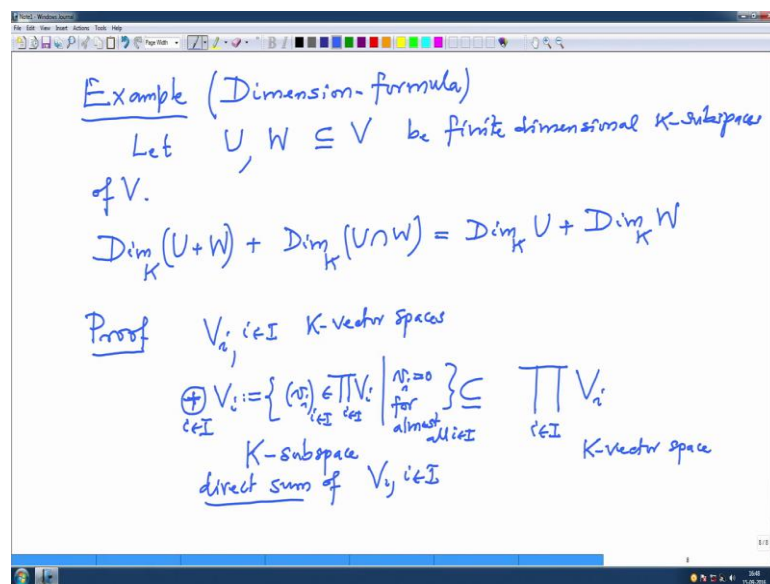 Note1 - Windows Journal
File Edit View Insert Actions Tools Help
Page Width
Example (Dimension-formula)
Let U, W ⊆ V be finite dimensional K-subspaces
of V.
Dim_K (U+W) + Dim_K (U∩W) = Dim_K U + Dim_K W
Proof V_i, i∈I K-vector spaces
⊕_{i∈I} V_i := { (v_i)_{i∈I} ∈ ∏_{i∈I} V_i | v_i = 0 for almost all i∈I } ⊆ ∏_{i∈I} V_i
K-subspace K-vector space
direct sum of V_i, i∈I
8/8
8
16:48
15-09-2016